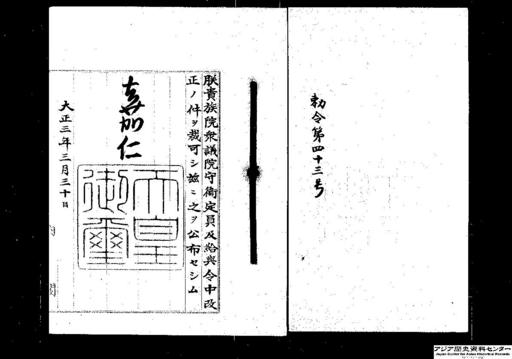 勅令第四十三号
朕貴族院衆議院守衛定員及給與令中改
正ノ件ヲ裁可シ茲ニ之ヲ公布セシム
嘉仁
天皇
御璽
大正三年三月三十日
内閣
アジア歴史資料センター
Japan Center for Asian Historical Records